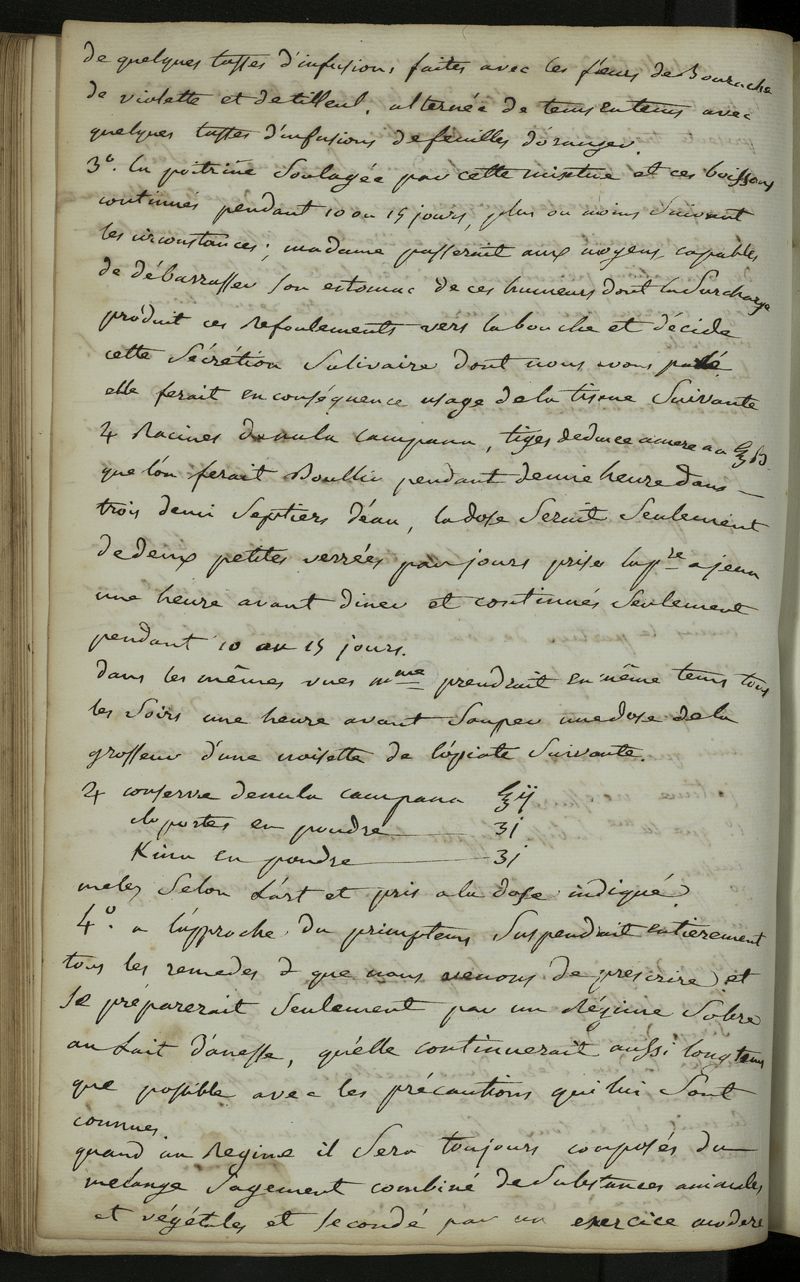 de quelques tasses d'infusions faites avec les fleurs de Bourache
de violette et de tilleul, alternée de tems en tems avec
quelques tasses d'infusions de feuilles d'oranger.
3°. la poitrine soulagée par cette mixture et ces boissons
continués pendant 10 ou 15 jours, plus ou moins suivant
les circonstances; madame passerait aux moyens capables
de débarrasser son estomac de ces humeurs dont la surcharge
produit ces refoulements vers la bouche et décide
cette sécrétion salivaire dont nous avons parlé
elle ferait en conséquence usage de la tisane suivante
♃ Racines d'enula campana, tiges de douce amere aa ℥ß
que l'on ferait Boullir pendant demie heure dans
trois demi septiers d'eau, la dose serait seulement
de deux petites verrées par jours prises la p.re a jeun
une heure avant diner et continués seulement
pendant 10 ou 15 jours.
dans les mêmes vues mme prendrait en même tems tous
les soirs une heure avant souper une dose de la
grosseur d'une noisette de l'opiate suivante.
♃ conserve denula campana ℥ij
cloportes en poudre ʒj
Kina en poudre ʒj
melez selon l'art et pris a la dose indiqué.
4°. a l'approche du printems suspendrait entièrement
tous les remedes que nous venons de prescrire et
se préparerait seulement par un régime sobre
au Lait d'anesse, qu'elle continuerait aussi longtems
que possible avec les précautions qui lui sont
connues.
quand au Regime il sera toujours composés du
melange sagement combiné de substances animales
et végétales et secondé par un exercice modéré